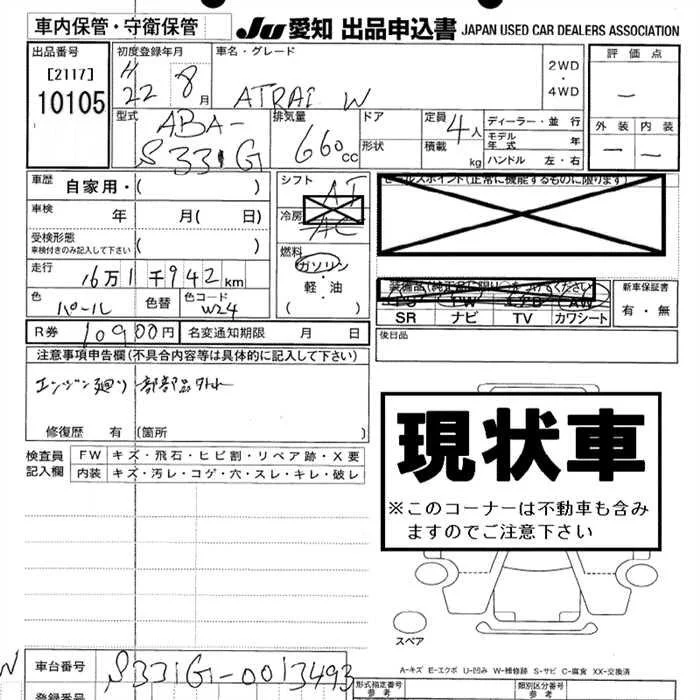 車内保管・守衛保管
JU 愛知 出品申込書 JAPAN USED CAR DEALERS ASSOCIATION
出品番号
[2117]
10105
初度登録年月
H 22 8 月
車名・グレード
ATRAI W
2WD
・
4WD
評価点
―
外装 内装
― ―
型式
ABA-
S331G
排気量
660 cc
ドア
形状
定員 4人
積載 kg
ディーラー・並行
モデル年式 年
ハンドル 左・右
車歴
自家用・( )
シフト AT
セールスポイント(正常に機能するものに限ります)
車検 年 月( 日)
冷房 AC
受検形態
車検付きのみ記入して下さい ( )
燃料
ガソリン
・
軽・油
( )
走行
16万1千942km
色 パール 色替 色コード W24
装備品(純正品に限り○をつけてください)
PS PW エアB AW
SR ナビ TV カワシート
新車保証書
有・無
R券 10900円 名変通知期限 月 日
後日品
注意事項申告欄(不具合内容等は具体的に記入して下さい)
エンジン廻り 部品外れ
修復歴 有 (箇所 )
検査員 記入欄
FW キズ・飛石・ヒビ割・リペア跡・X要
内装 キズ・汚レ・コゲ・穴・スレ・キレ・破レ
現状車
※このコーナーは不動車も含み
ますのでご注意下さい
スペア
A-キズ E-エクボ U-凹み W-補修跡 S-サビ C-腐食 XX-交換済
車台番号 S331G-0013493
形式指定番号
参考
類別区分番号
参考
登録番号